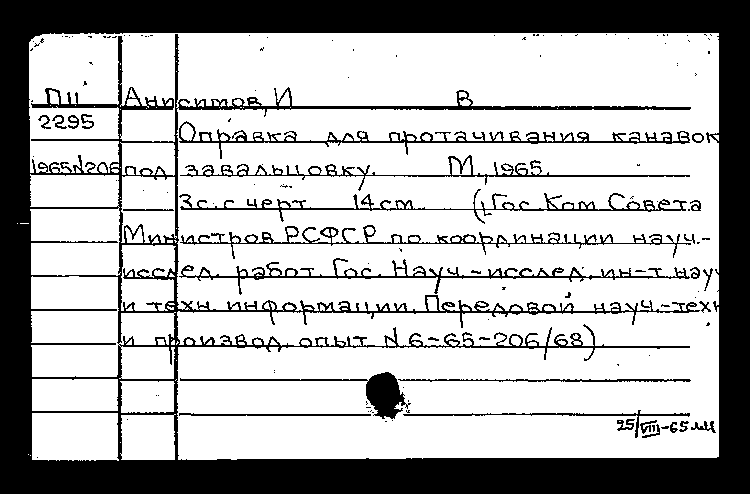 П11 Анисимов, И В
2295
Оправка для протачивания канавок
1965N206 под завальцовку. М., 1965.
3с. с черт. 14 см. (Гос. Ком. Совета
Министров РСФСР по координации науч.-
исслед. работ. Гос. Науч.-исслед. ин-т науч
и техн. информации. Передовой науч.-техн
и производ. опыт N 6-65-206/68).
25/VIII-65